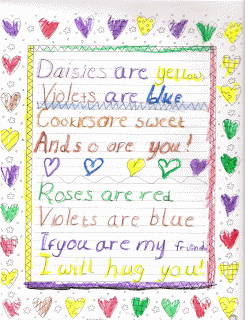 Daisies are yellow
Violets are blue
Cookies are sweet
And so are you!
Roses are red
Violets are blue
If you are my friend
I will hug you!